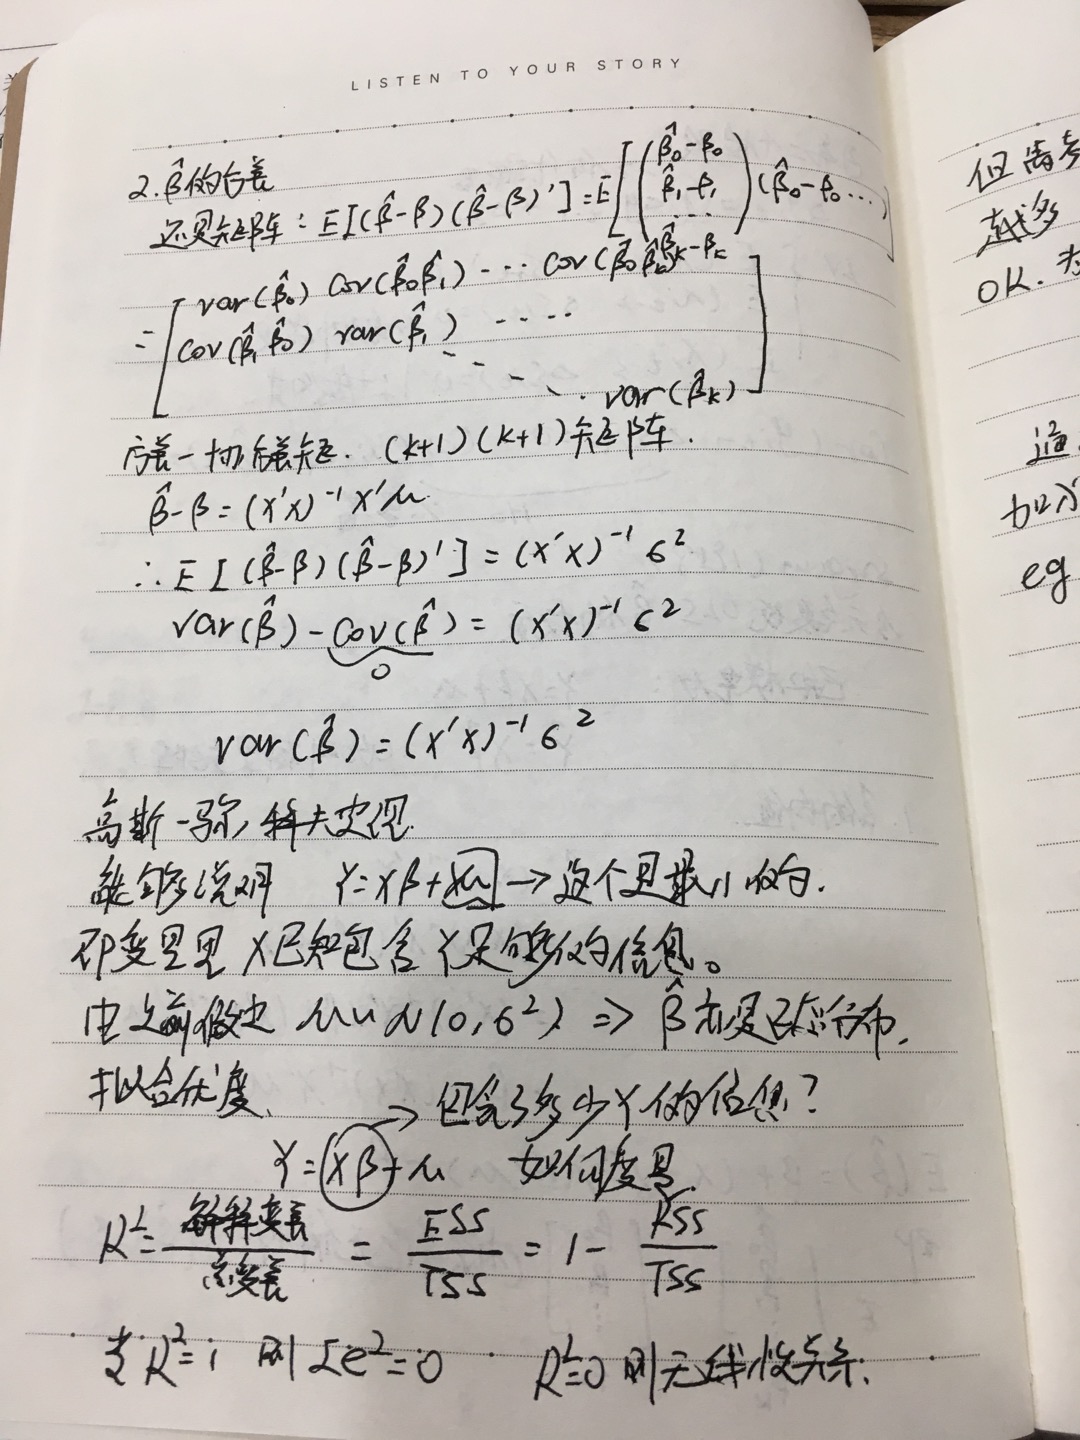 LISTEN TO YOUR STORY
2. β̂的方差
还是矩阵：E[(β̂-β)(β̂-β)'] = E[(β̂₀-β₀
β̂₁-β₁
...
β̂k-βk)(β̂₀-β₀...)]
= [var(β̂₀) Cov(β̂₀β̂₁) ... Cov(β̂₀β̂k)
Cov(β̂₁β̂₀) var(β̂₁) ....
var(β̂k)]
方差-协方差矩. (k+1)(k+1)矩阵.
β̂-β=(x'x)⁻¹x'μ
∴ E[(β̂-β)(β̂-β)'] = (x'x)⁻¹6²
var(β̂)-Cov(β̂) = (x'x)⁻¹6²
0
var(β̂) = (x'x)⁻¹6²
高斯-马尔,科夫
能够说明 Y=Xβ+ → 这个是最小的.
即变量里X已知包含Y足够多的信息。
由之前假定 N(0,6²) ⇒ β̂亦是正态分布.
拟合优度
→ 包含了多少Y的信息?
Y=Xβ+μ 如何度量
R²= 解释变差/总变差 = ESS/TSS = 1- RSS/TSS
R²=1 则Σe²=0 R²=0则无线性关系.
但需
越多
OK.
eg